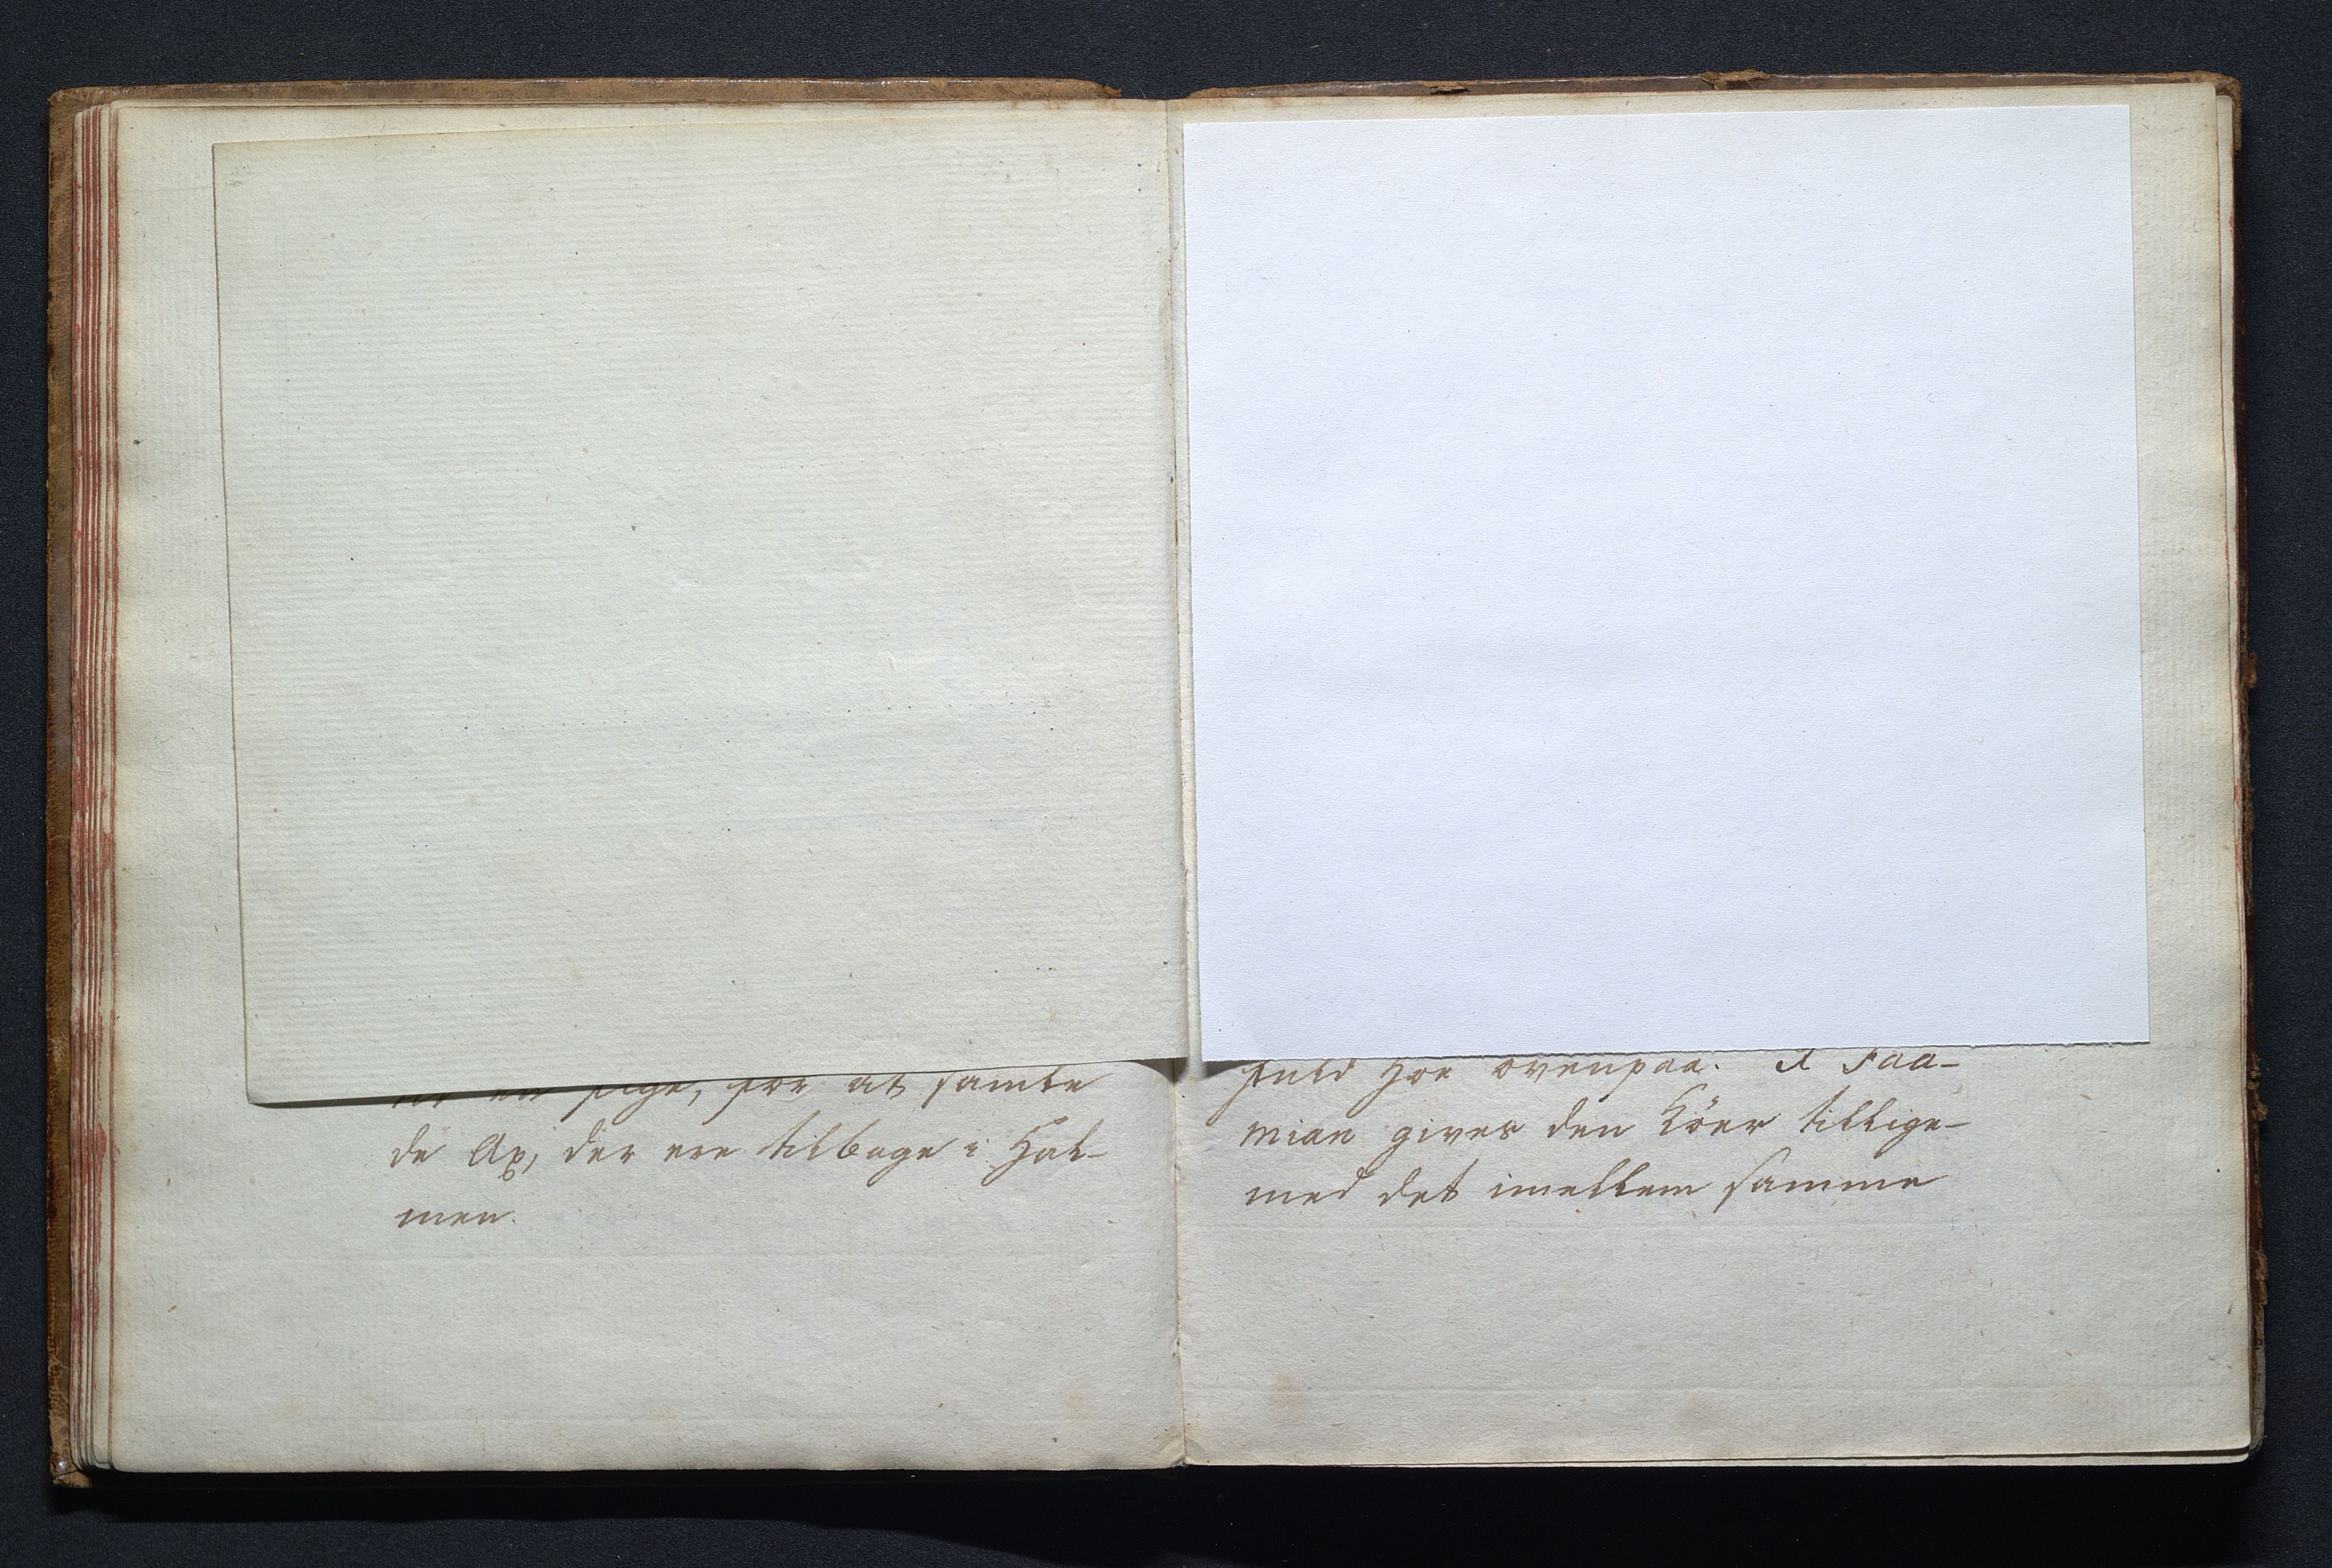 en Pige, for at samle
de Ax, der ere tilbage i Hal-
men.
fuld Høe ovenpaa. I Faa-
mian gives den Köer tillige-
med det imellem samme